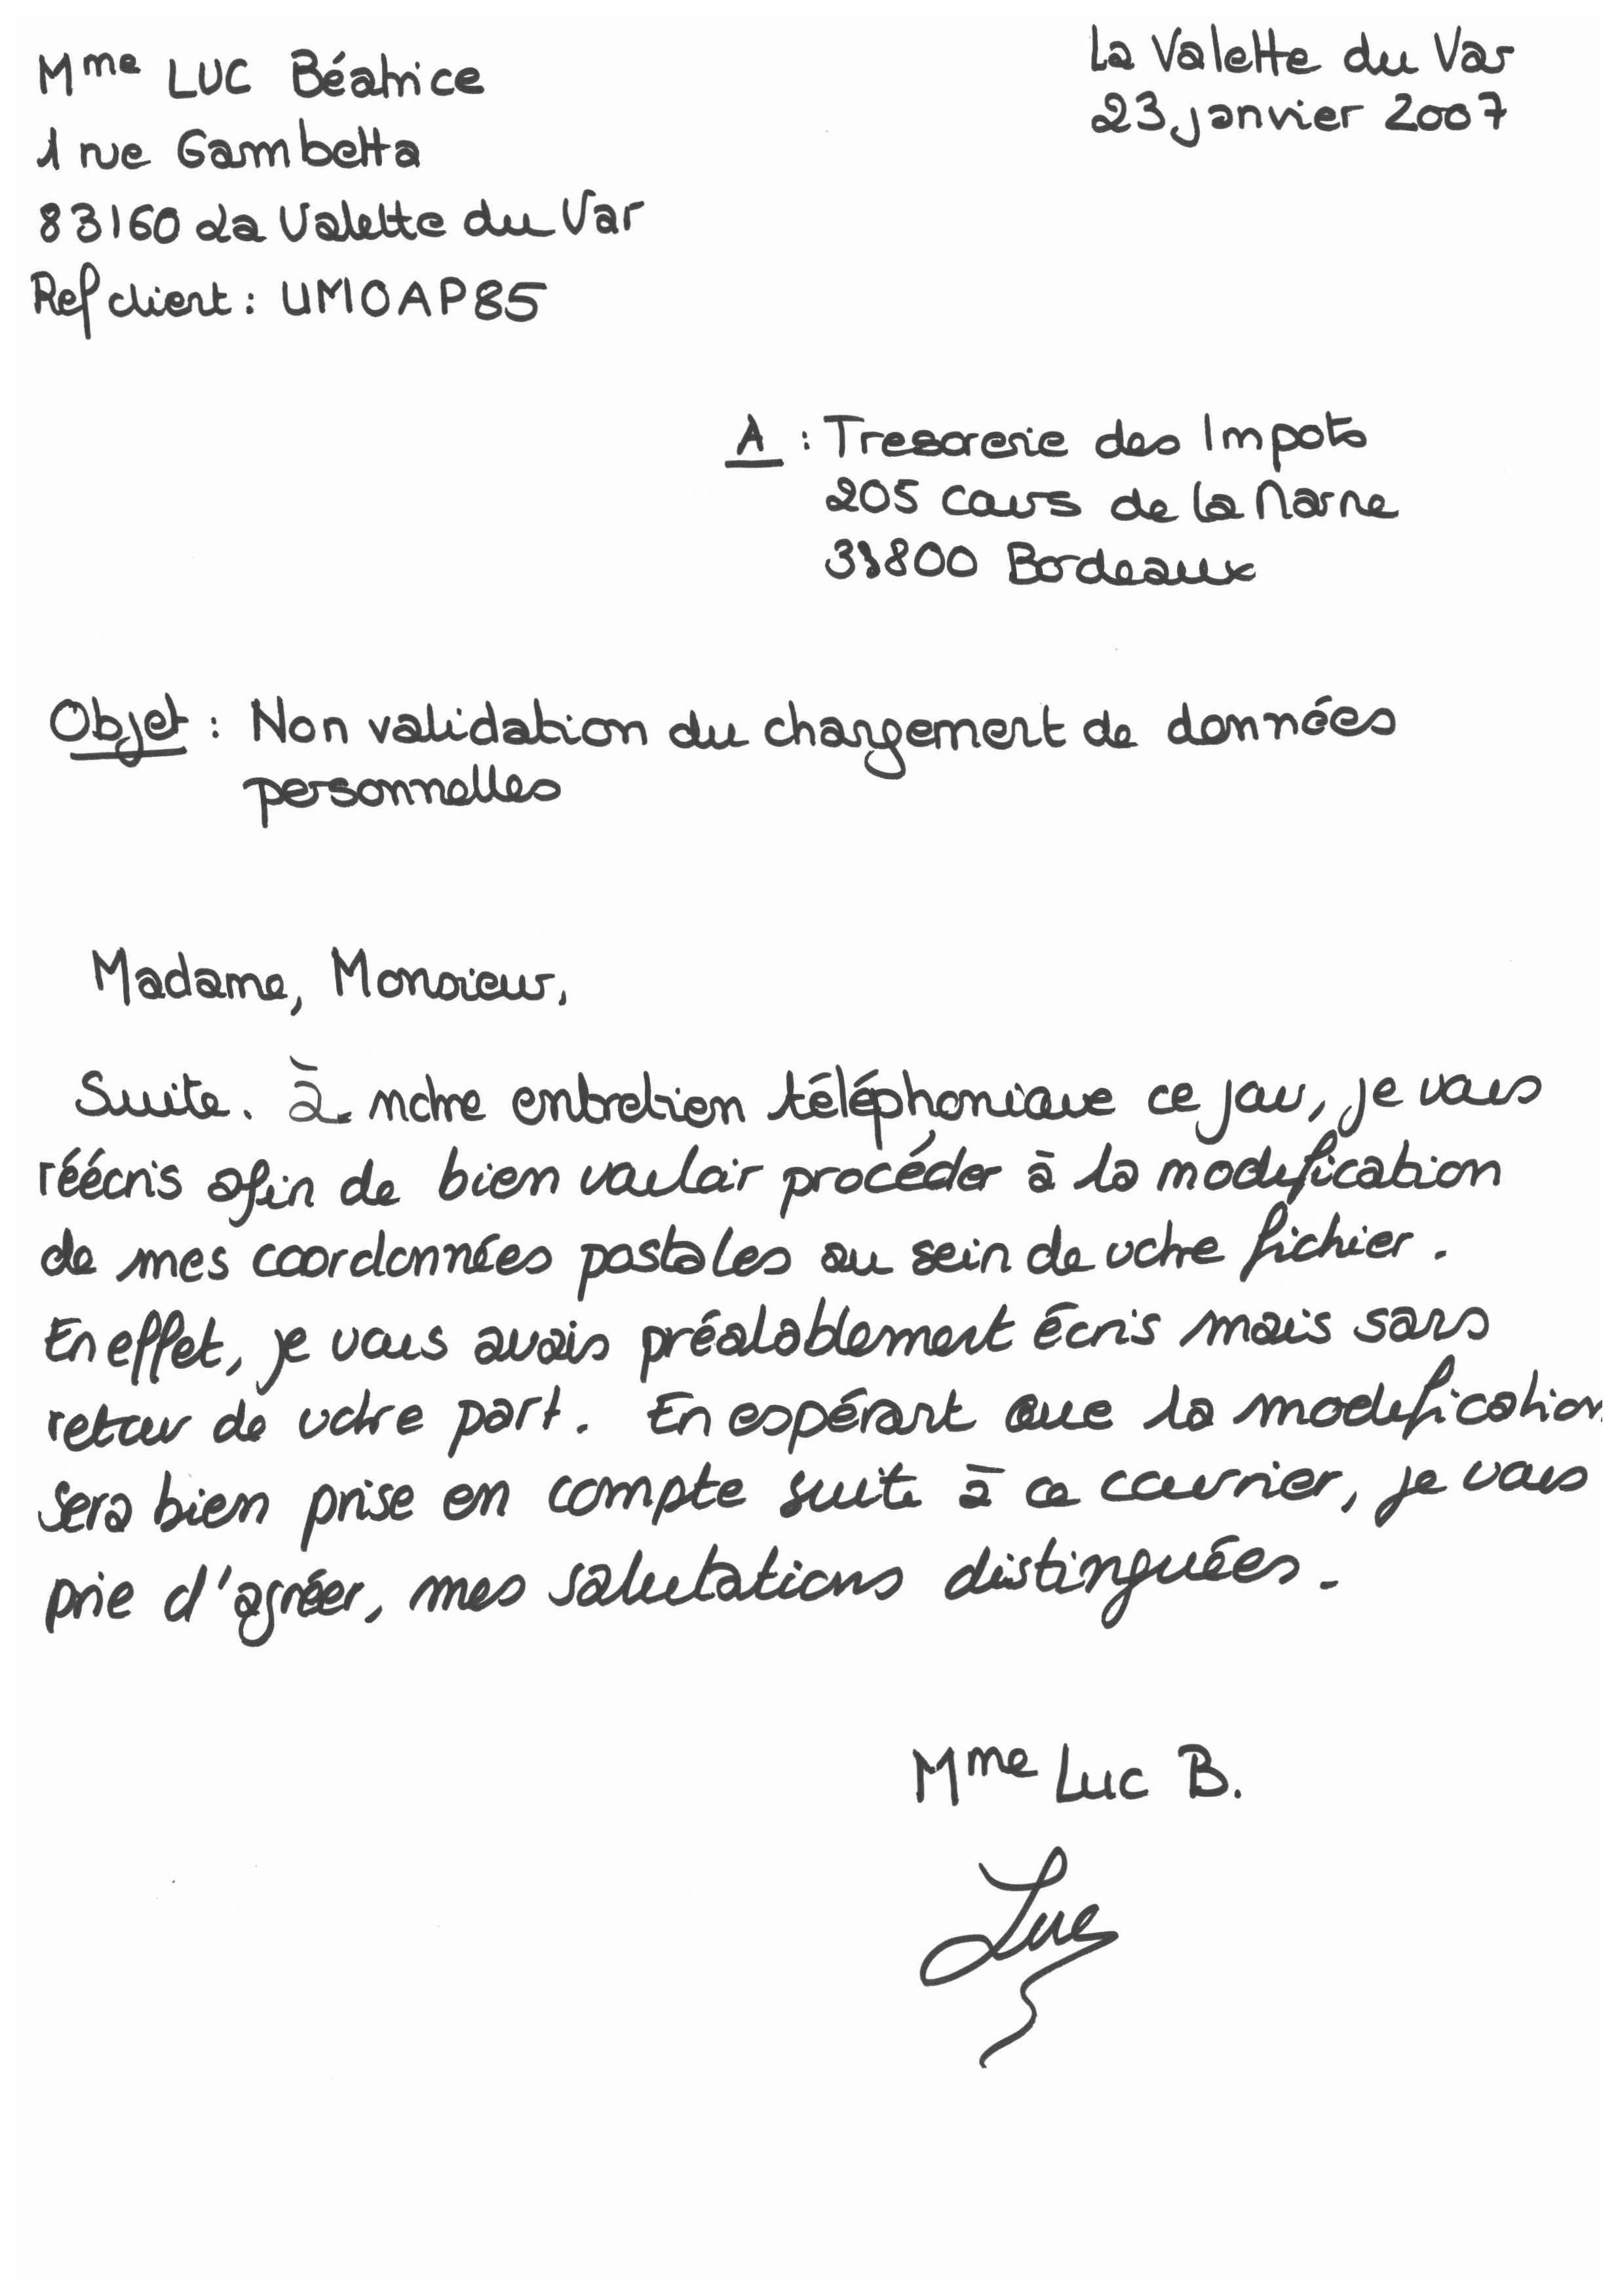 Mme LUC Béatrice
1 rue Gambetta
83160 La Valette du Var
Ref client : UMOAP85
La Valette du Var
23 janvier 2007
A : Tresorerie des Impots
205 cours de la Marne
33800 Bordeaux
Objet : Non validation du changement de données
personnelles
Madame, Monsieur,
Suite. à notre entretien téléphonique ce jour, je vous
réécris afin de bien vouloir procéder à la modification
de mes coordonnées postales au sein de votre fichier.
En effet, je vous avais préalablement écris mais sans
retour de votre part. En espérant que la modification
sera bien prise en compte suite à ce courrier, je vous
prie d'agréer, mes salutations distinguées.
Mme Luc B.
Luc